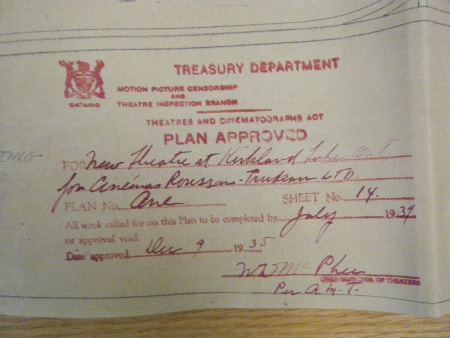 TREASURY DEPARTMENT
ONTARIO
MOTION PICTURE CENSORSHIP
AND
THEATRE INSPECTION BRANCH
THEATRES AND CINEMATOGRAPHS ACT
PLAN APPROVED
FOR New Theatre at Kirkland Lake Ont,
for Cinémas Trudeau LTD.
PLAN No. One SHEET No. 14.
All work called for on this Plan to be completed by July 1937
or approval void.
Date approved Dec 9 1935
McPhee
OF THEATRES
Per A. M. T.